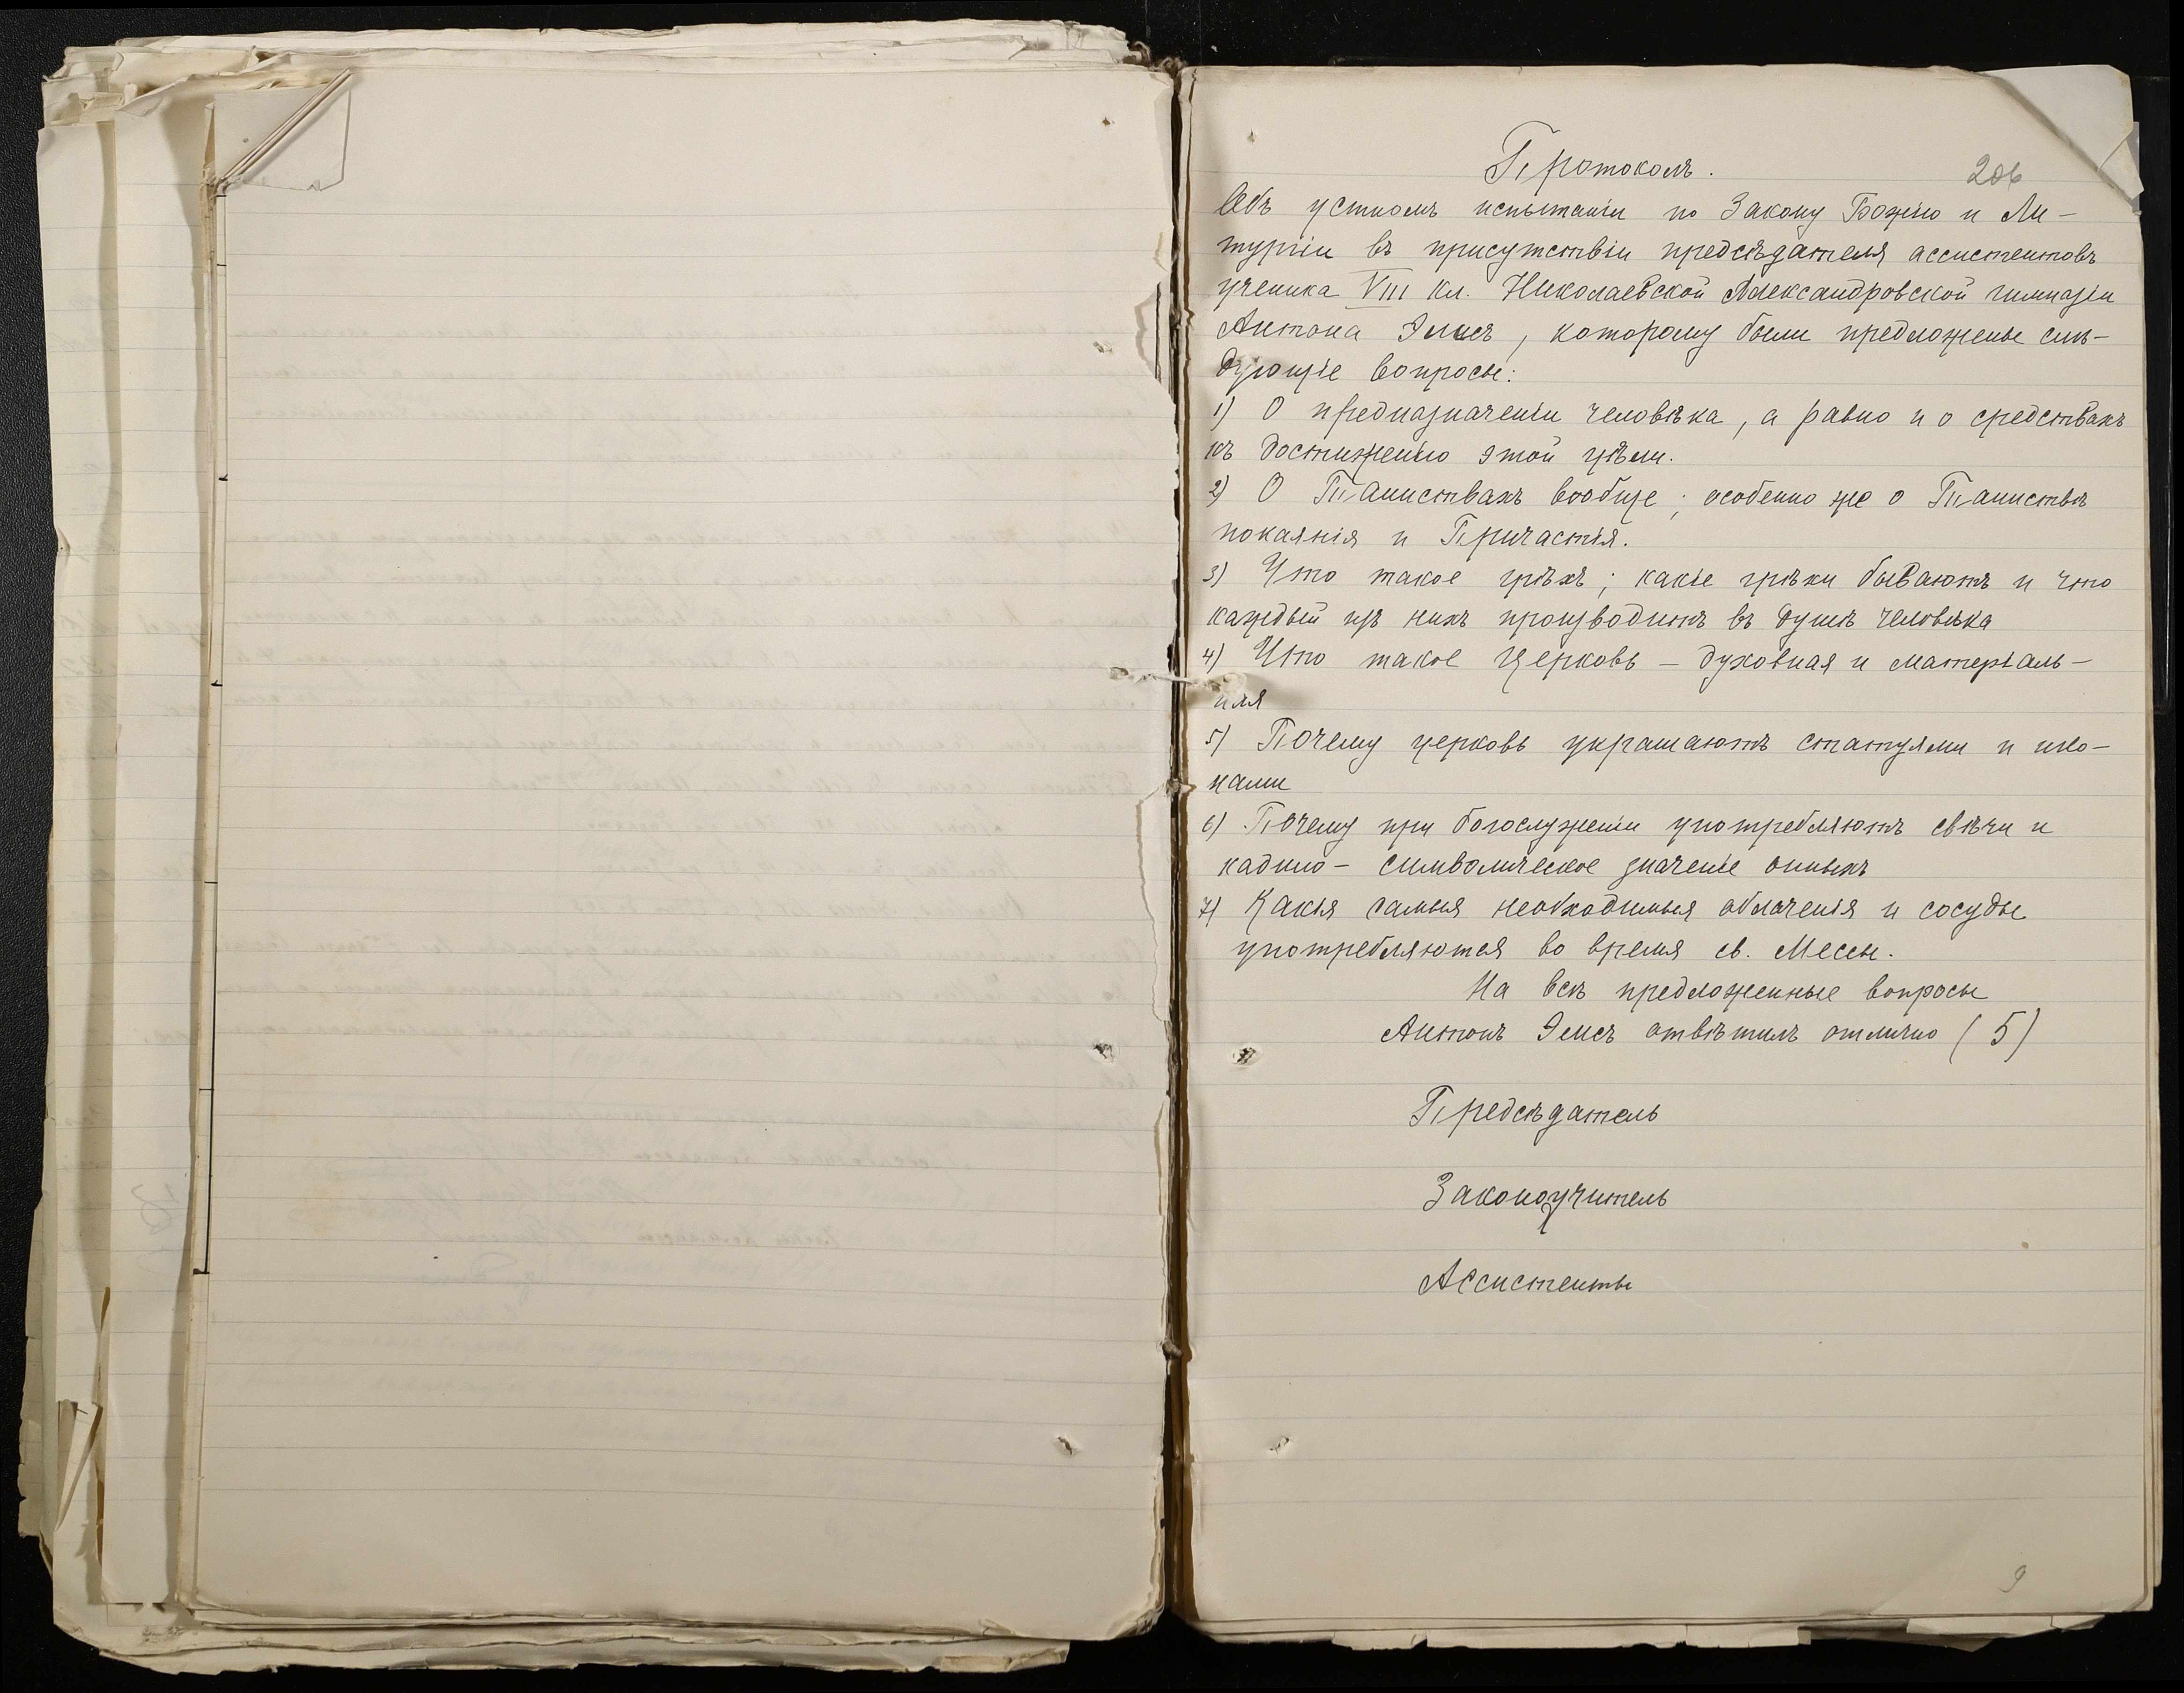 Протоколъ.
206
Объ устномъ испытаніи по Закону Божію и Ли-
тургіи въ присутствіи предсѣдателя ассистентовъ
ученика VIII кл. Николаевской Александровской гимназіи
Антона Эммсъ, которому были предложены слѣ-
дующіе вопросы:
1) О предназначеніи человѣка, а равно и о средствахъ
къ достиженію этой цѣли.
2) О Таинствахъ вообще; особенно же о Таинствѣ
покаянія и Причастія.
3) Что такое грѣхъ; какіе грѣхи бываютъ и что
каждый изъ нихъ производитъ въ душѣ человѣка
4) Что такое Церковь – духовная и матеріаль-
ная
5) Почему церковь украшаютъ статуями и ико-
нами
6) Почему при богослуженіи употребляютъ свѣчи и
кадило – символическое значеніе оныхъ
7) Какія самыя необходимыя облаченія и сосуды
употребляются во время св. Мессы.
На всѣ предложенные вопросы
Антонъ Эмсъ отвѣтилъ отлично (5)
Предсѣдатель
Законоучитель
Ассистенты
9